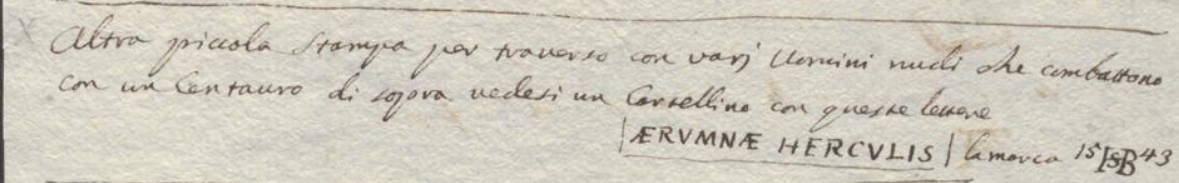 Altra piccola stampa per traverso con varj Uomini nudi che combattono
con un Centauro di sopra vedesi un Cartellino con queste lettere
ÆRVMNÆ HERCVLIS la marca 15 ISB 43